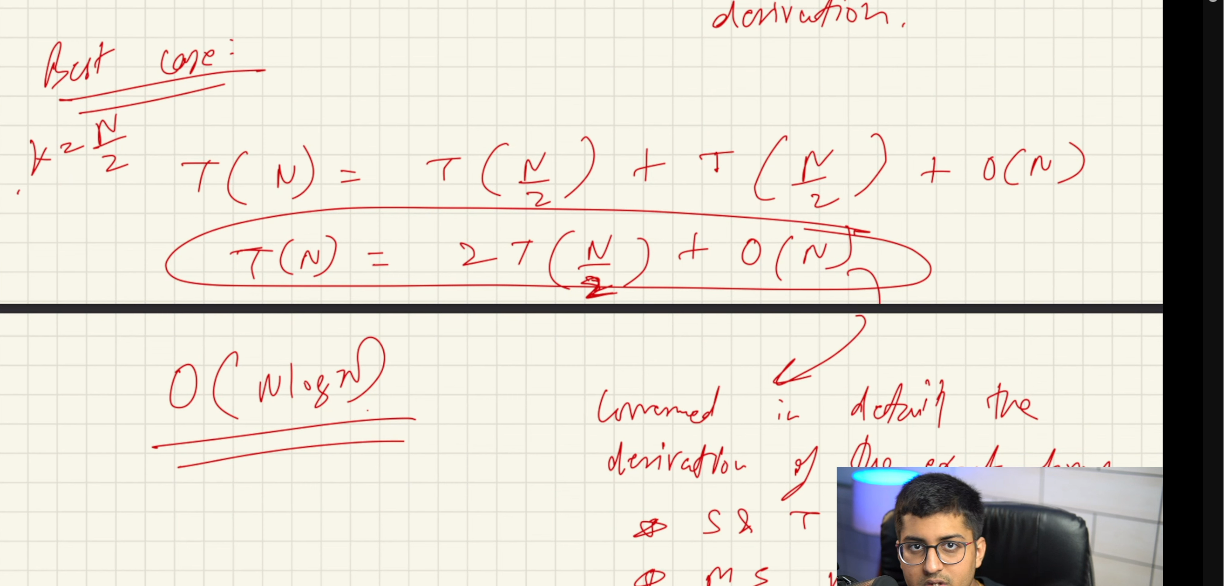 derivation.
Best case:
k = N/2
T(N) = T(N/2) + T(N/2) + O(N)
T(N) = 2T(N/2) + O(N)
O(N log N)
in detail the
derivation of the
* S & T
* M S